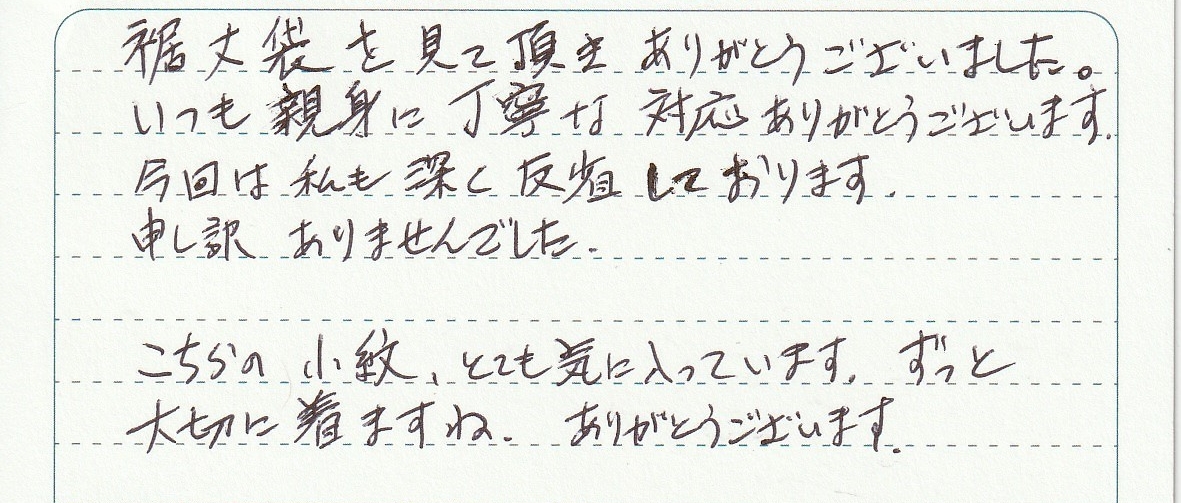 裾丈袋を見て頂き ありがとうございました。
いつも親身に丁寧な 対応ありがとうございます.
今回は 私も 深く 反省しております.
申し訳 ありませんでした.
こちらの 小紋、とても気に入っています. ずっと
大切に着ますね. ありがとうございます.